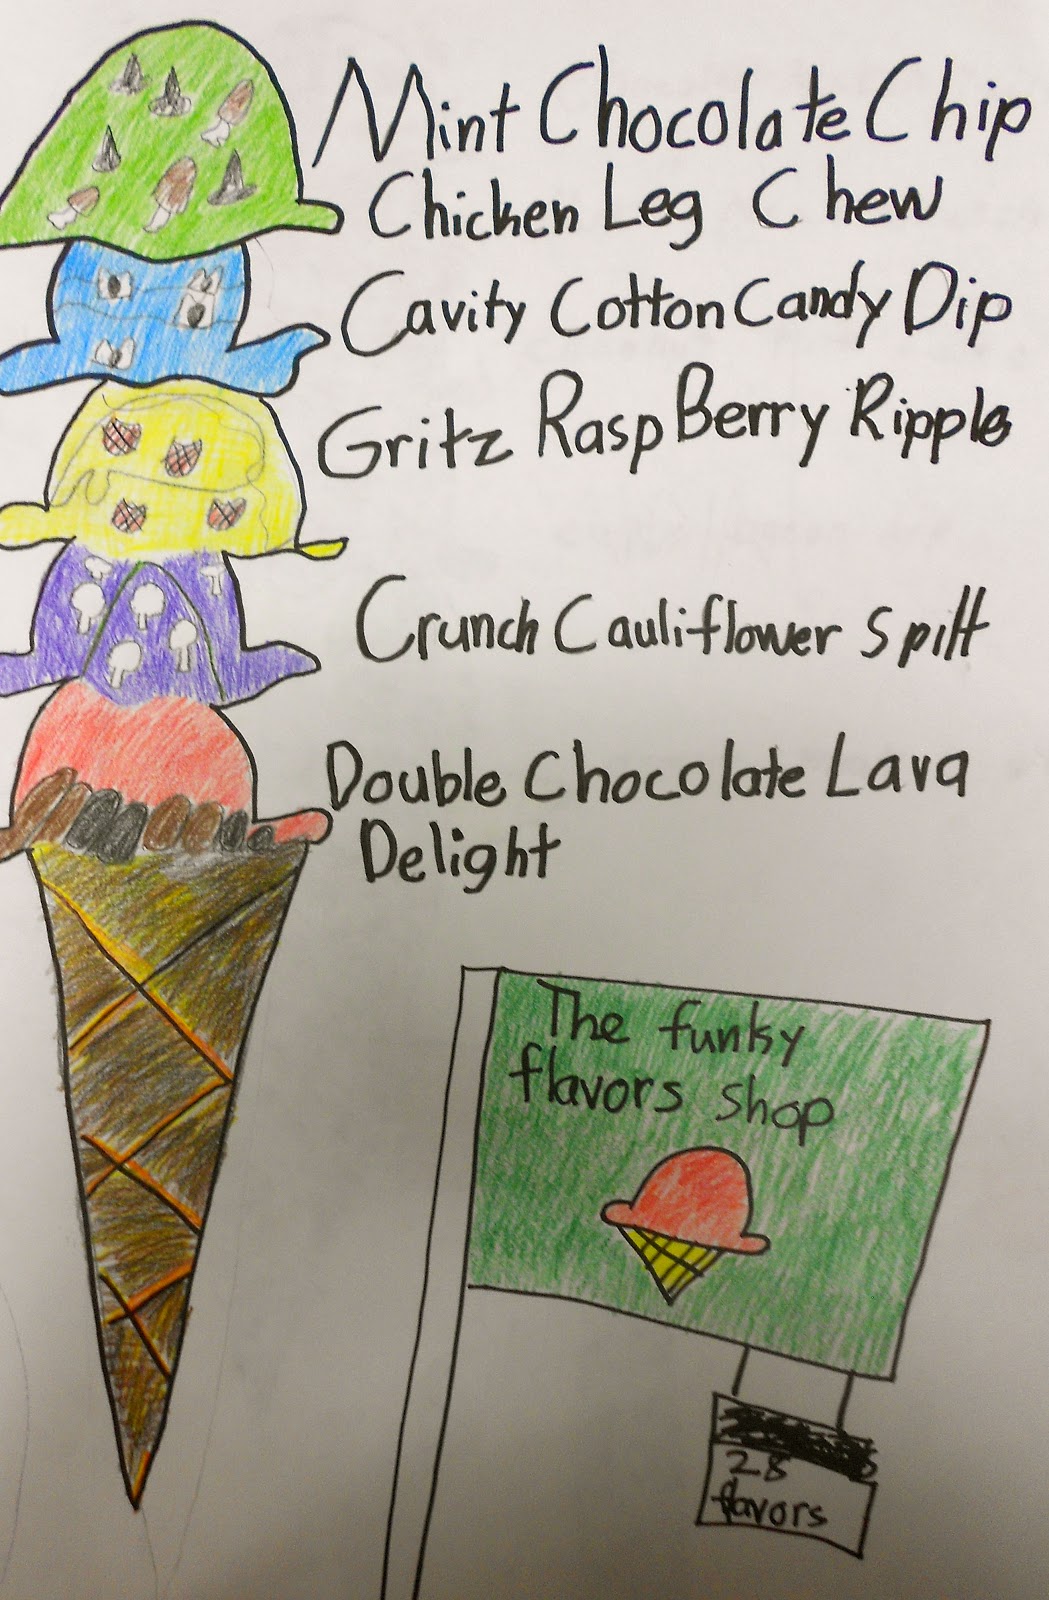 Mint Chocolate Chip
Chicken Leg Chew
Cavity Cotton Candy Dip
Gritz RaspBerry Ripple
Crunch Cauliflower Spilt
Double Chocolate Lava
Delight
The funky
flavors shop
28
flavors